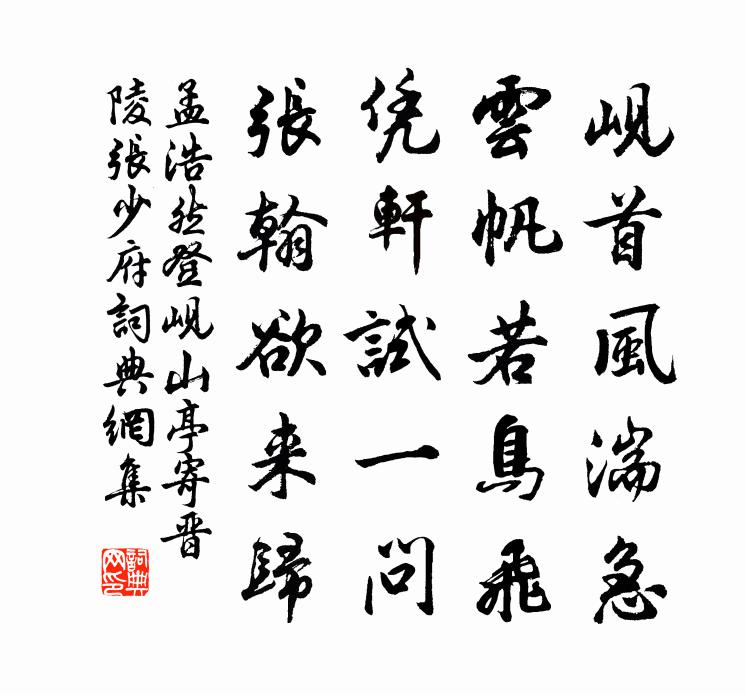 峴首風湍急
雲帆若鳥飛
凭軒試一問
張翰欲来歸
孟浩然登峴山亭寄晋
陵張少府詞典網集
詞典網印